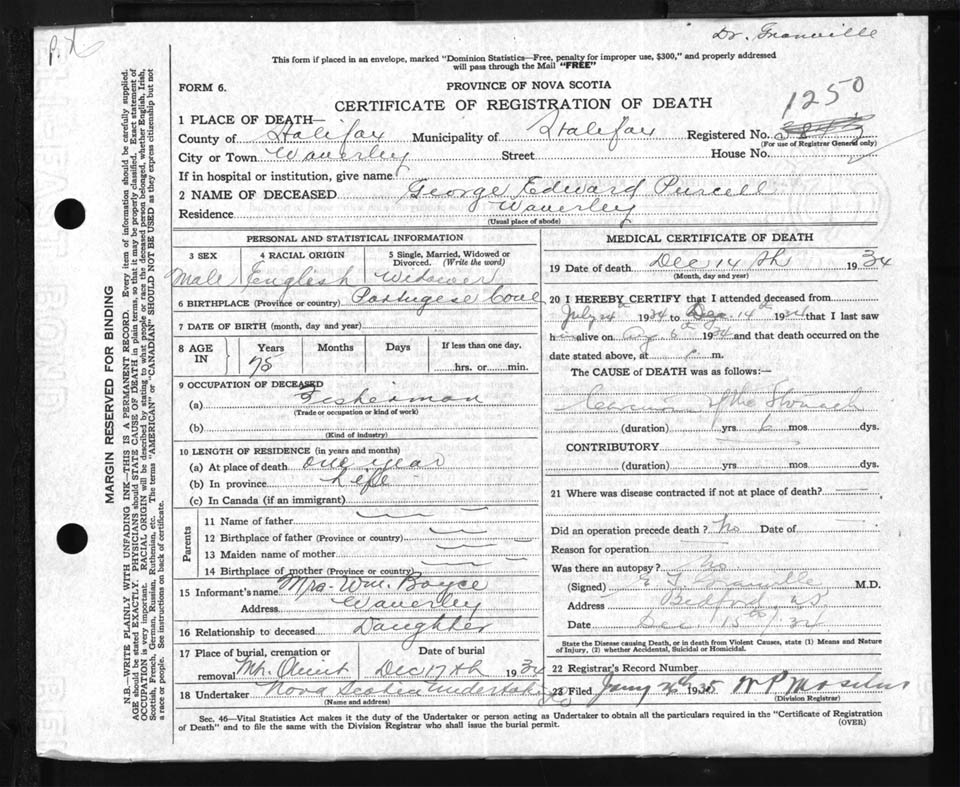 Dr. Granville
This form if placed in an envelope, marked "Dominion Statistics—Free, penalty for improper use, $300," and properly addressed
will pass through the Mail "FREE"
FORM 6.
PROVINCE OF NOVA SCOTIA
CERTIFICATE OF REGISTRATION OF DEATH
1250
1 PLACE OF DEATH—
County of Halifax Municipality of Halifax Registered No.
(For use of Registrar General only)
City or Town Waverley Street House No.
If in hospital or institution, give name
2 NAME OF DECEASED George Edward Purcell
Residence Waverley
(Usual place of abode)
PERSONAL AND STATISTICAL INFORMATION
3 SEX 4 RACIAL ORIGIN 5 Single, Married, Widowed or
Divorced. (Write the word)
Male English Widower
6 BIRTHPLACE (Province or country) Portugese Cove
7 DATE OF BIRTH (month, day and year)
8 AGE IN Years Months Days If less than one day,
75 hrs. or min.
9 OCCUPATION OF DECEASED
(a) Fisherman
(Trade or occupation or kind of work)
(b)
(Kind of industry)
10 LENGTH OF RESIDENCE (in years and months)
(a) At place of death one year
(b) In province Life
(c) In Canada (if an immigrant)
Parents
11 Name of father
12 Birthplace of father (Province or country)
13 Maiden name of mother
14 Birthplace of mother (Province or country)
15 Informant's name Mrs. Wm. Boyce
Address Waverley
16 Relationship to deceased Daughter
17 Place of burial, cremation or Date of burial
removal Mt. Olivet Dec 17th 1934
18 Undertaker Nova Scotia Undertaking Co
(Name and address)
MEDICAL CERTIFICATE OF DEATH
19 Date of death Dec 14th 1934
(Month, day and year)
20 I HEREBY CERTIFY that I attended deceased from
July 24th 1934 to Dec. 14th 1934 that I last saw
him alive on 1934 and that death occurred on the
date stated above, at m.
The CAUSE of DEATH was as follows:—
Carcinoma of the Stomach
(duration) yrs. 6 mos. dys.
CONTRIBUTORY
(duration) yrs. mos. dys.
21 Where was disease contracted if not at place of death?
Did an operation precede death? No Date of
Reason for operation
Was there an autopsy? No
(Signed) Granville M.D.
Address Bedford, NS
Date Dec 15th/34
State the Disease causing Death, or in death from Violent Causes, state (1) Means and Nature
of Injury, (2) whether Accidental, Suicidal or Homicidal.
22 Registrar's Record Number
23 Filed 1935
(Division Registrar)
Sec. 46—Vital Statistics Act makes it the duty of the Undertaker or person acting as Undertaker to obtain all the particulars required in the "Certificate of Registration
of Death" and to file the same with the Division Registrar who shall issue the burial permit.
(OVER)
MARGIN RESERVED FOR BINDING
N.B.—WRITE PLAINLY WITH UNFADING INK—THIS IS A PERMANENT RECORD. Every item of information should be carefully supplied.
AGE should be stated EXACTLY. PHYSICIANS should STATE CAUSE OF DEATH in plain terms, so that it may be properly classified. Exact statement of
OCCUPATION is very important. RACIAL ORIGIN will be described by stating to what people or race the deceased person belonged, whether English, Irish,
Scottish, French, German, Russian, Ruthenian, etc. The terms "AMERICAN" or "CANADIAN" SHOULD NOT BE USED as they express citizenship but not
a race or people. See instructions on back of certificate.